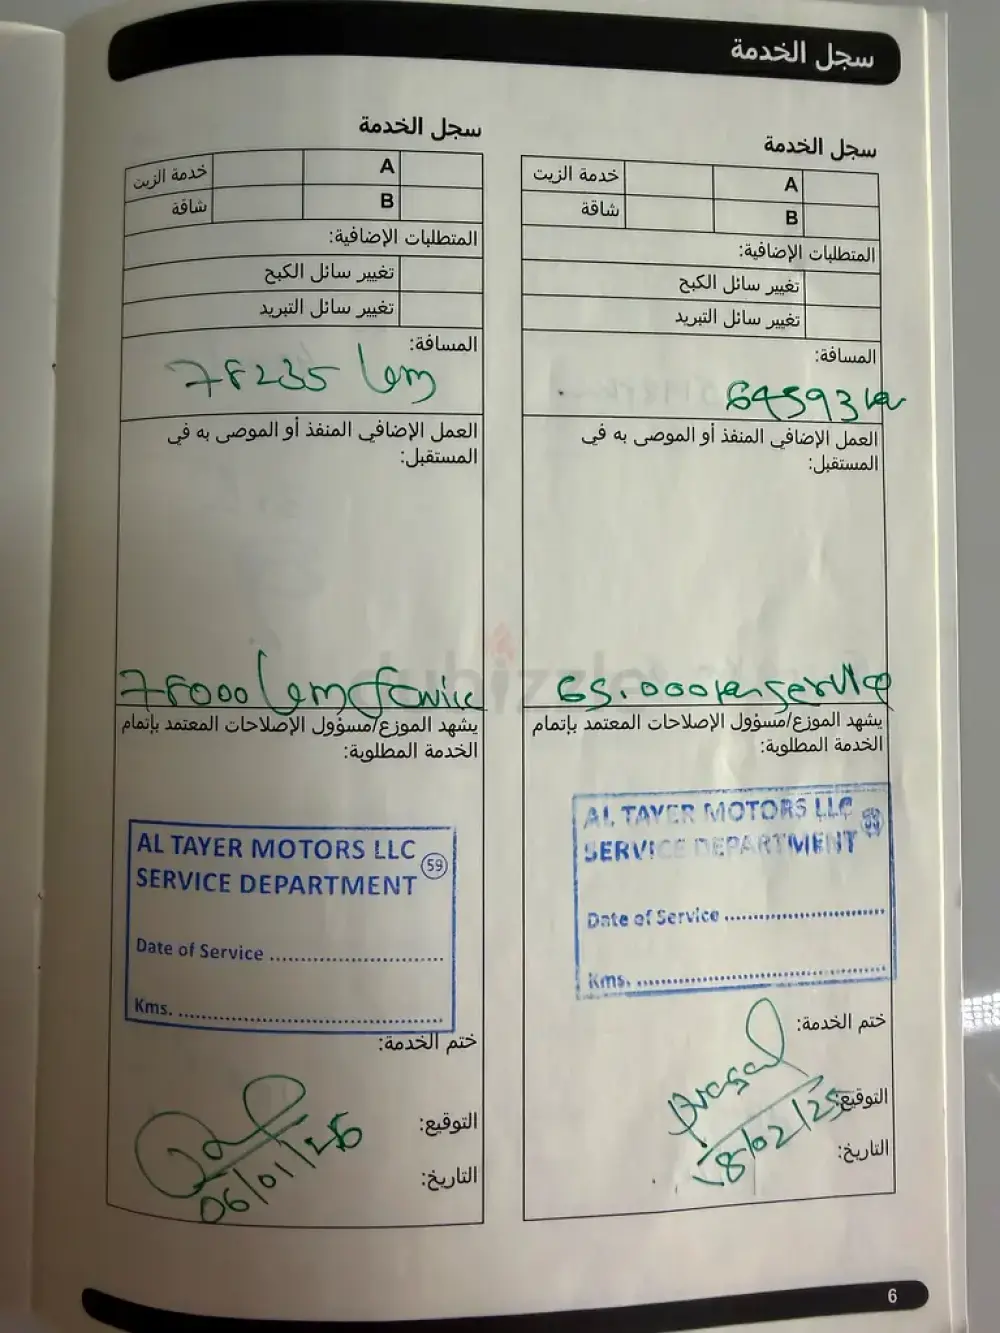 سجل الخدمة
سجل الخدمة
خدمة الزيت A
شاقة B
المتطلبات الإضافية:
تغيير سائل الكبح
تغيير سائل التبريد
المسافة:
64593 km
العمل الإضافي المنفذ أو الموصى به في
المستقبل:
65.000 km service
يشهد الموزع/مسؤول الإصلاحات المعتمد بإتمام
الخدمة المطلوبة:
AL TAYER MOTORS LLC
SERVICE DEPARTMENT
Date of Service
Kms.
ختم الخدمة:
التوقيع:
Prasad
التاريخ:
18/02/25
سجل الخدمة
خدمة الزيت A
شاقة B
المتطلبات الإضافية:
تغيير سائل الكبح
تغيير سائل التبريد
المسافة:
78235 km
العمل الإضافي المنفذ أو الموصى به في
المستقبل:
78000 km Service
يشهد الموزع/مسؤول الإصلاحات المعتمد بإتمام
الخدمة المطلوبة:
AL TAYER MOTORS LLC
59
SERVICE DEPARTMENT
Date of Service
Kms.
ختم الخدمة:
التوقيع:
التاريخ:
06/01/26
6
dubizzle